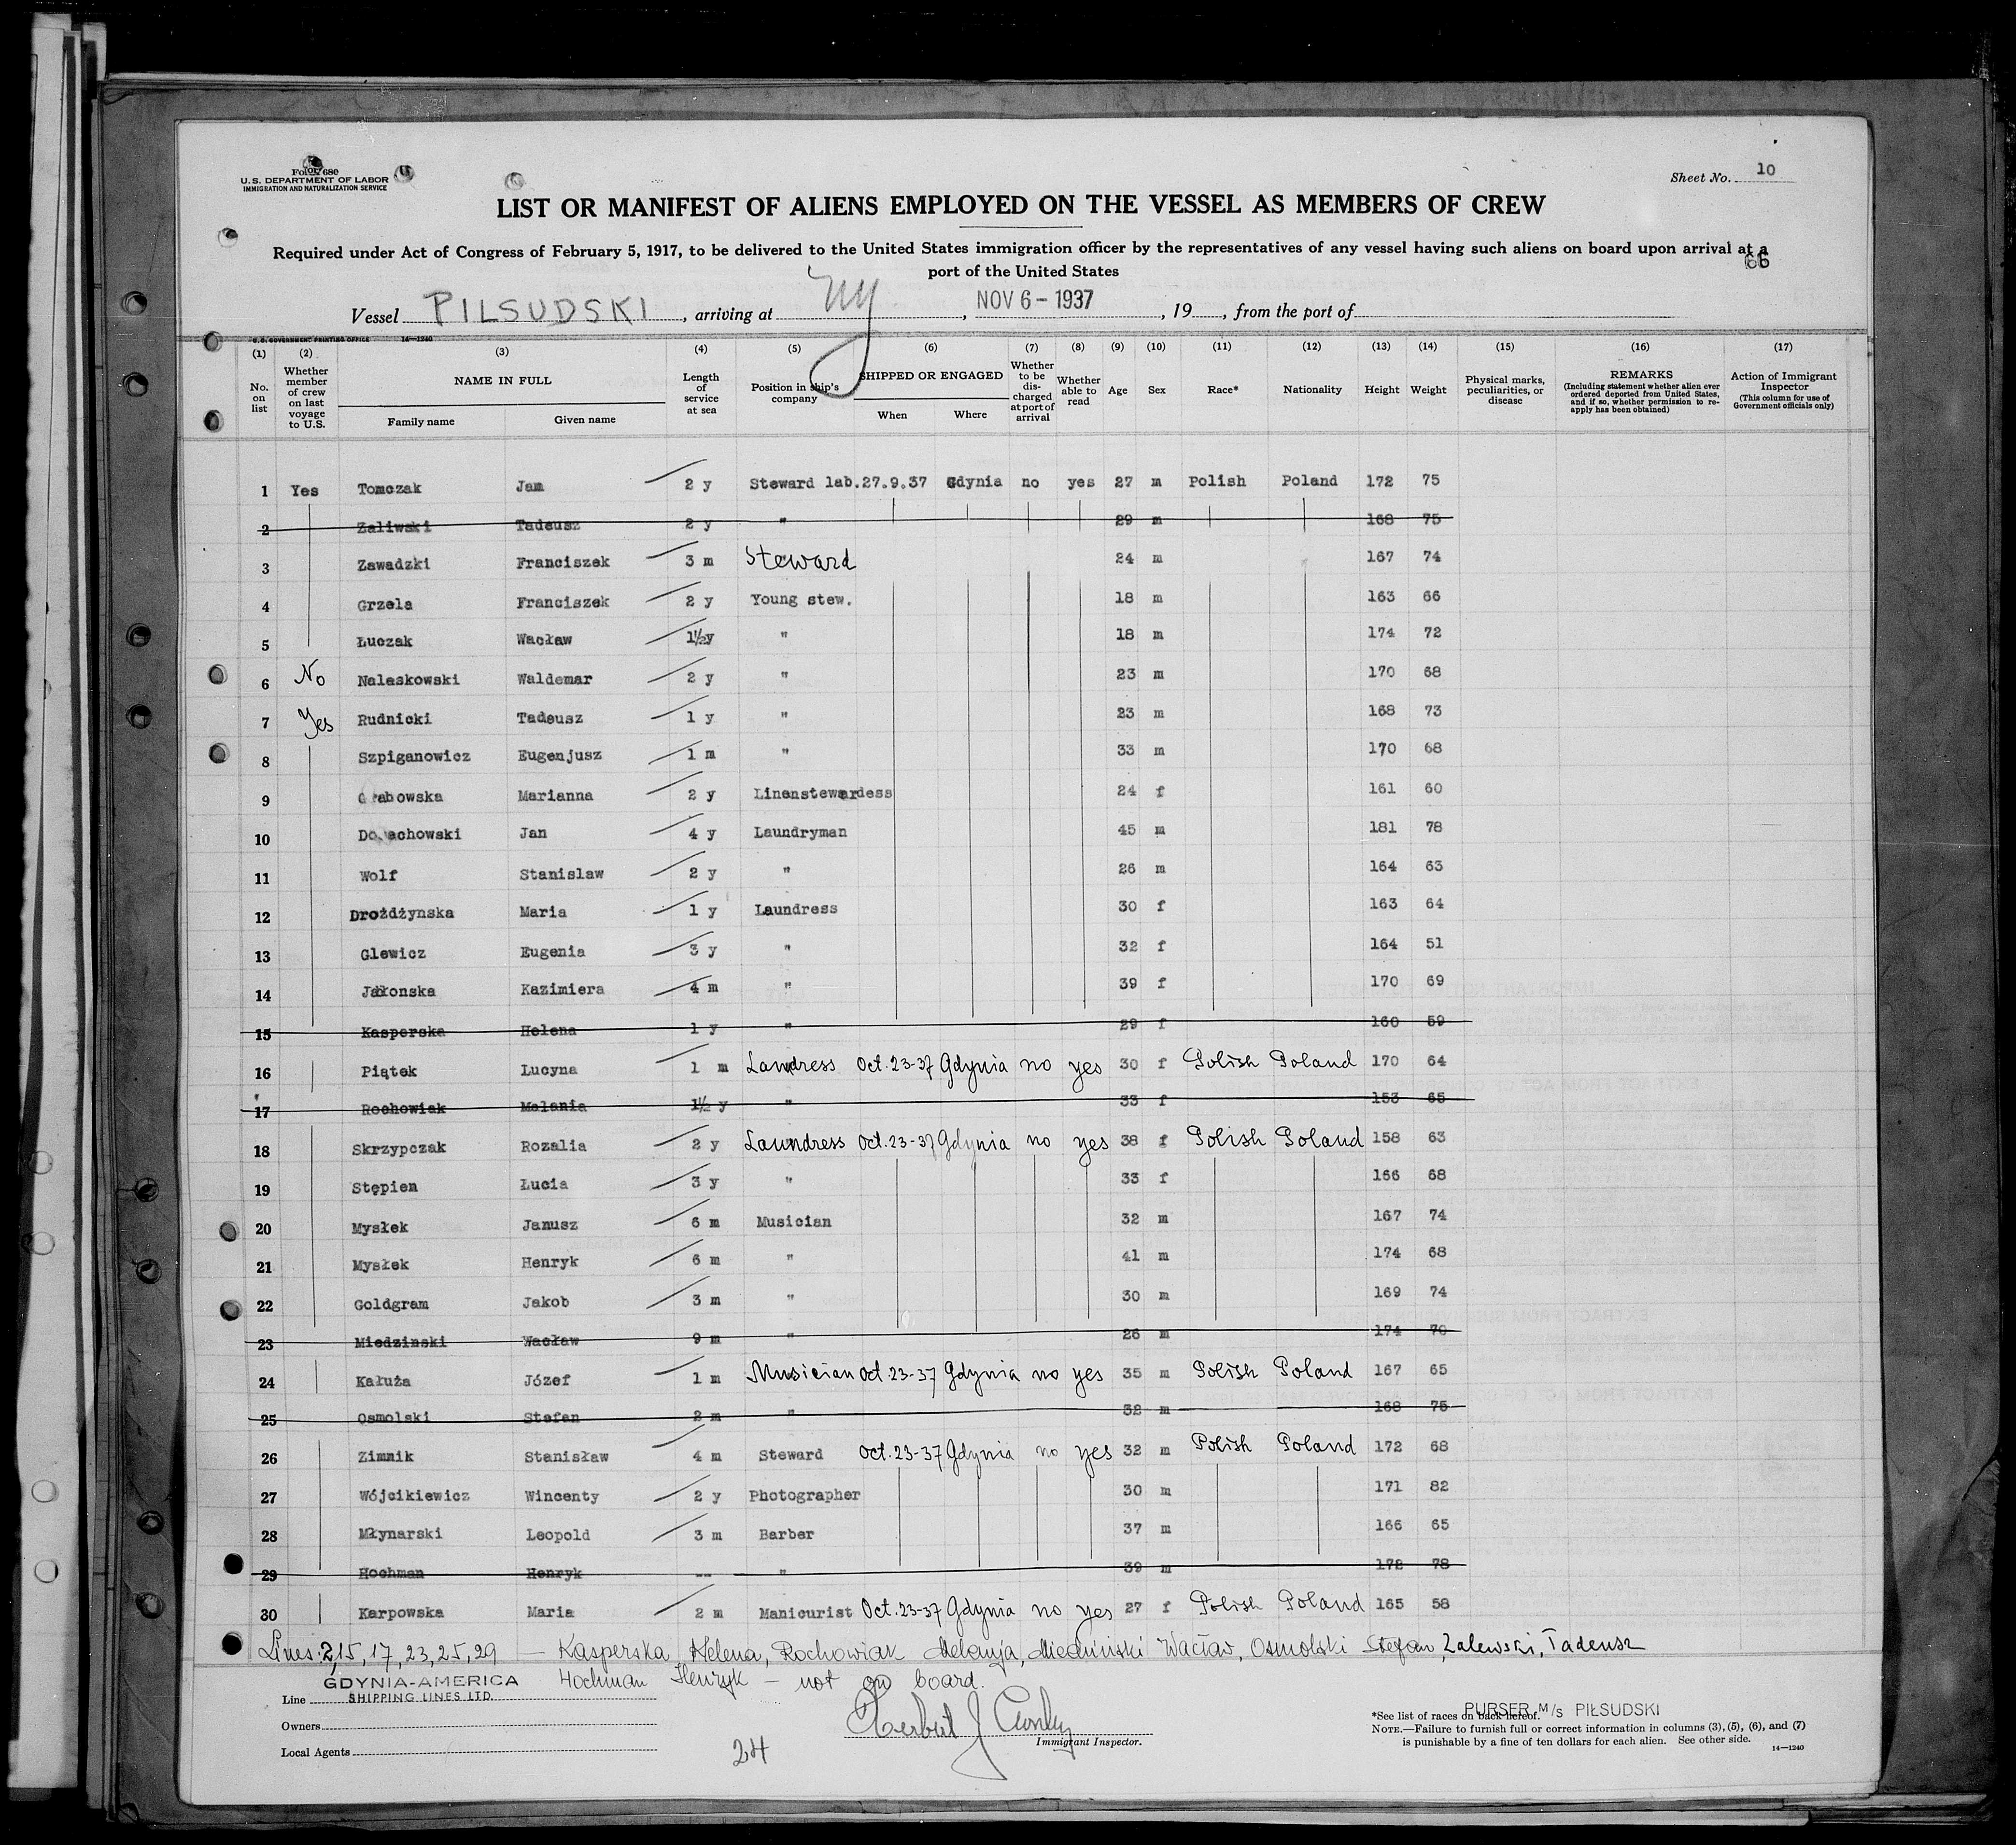 Form 680
U.S. DEPARTMENT OF LABOR
IMMIGRATION AND NATURALIZATION SERVICE
Sheet No. 10
LIST OR MANIFEST OF ALIENS EMPLOYED ON THE VESSEL AS MEMBERS OF CREW
Required under Act of Congress of February 5, 1917, to be delivered to the United States immigration officer by the representatives of any vessel having such aliens on board upon arrival at a
port of the United States
66
Vessel PILSUDSKI, arriving at NY, NOV 6 - 1937, 19, from the port of
U.S. GOVERNMENT PRINTING OFFICE 14—1240
(1) (2) (3) (4) (5) (6) (7) (8) (9) (10) (11) (12) (13) (14) (15) (16) (17)
No. on list
Whether member of crew on last voyage to U.S.
NAME IN FULL
Family name Given name
Length of service at sea
Position in ship's company
SHIPPED OR ENGAGED
When Where
Whether to be discharged at port of arrival
Whether able to read
Age Sex Race* Nationality Height Weight
Physical marks, peculiarities, or disease
REMARKS
(Including statement whether alien ever ordered deported from United States, and if so, whether permission to reapply has been obtained)
Action of Immigrant Inspector
(This column for use of Government officials only)
1 Yes Tomczak Jam 2 y Steward lab. 27.9.37 Gdynia no yes 27 m Polish Poland 172 75
2 Zaliwski Tadeusz 2 y " 29 m 168 75
3 Zawadzki Franciszek 3 m Steward 24 m 167 74
4 Grzela Franciszek 2 y Young stew. 18 m 163 66
5 Łuczak Wacław 1½y " 18 m 174 72
6 No Nalaskowski Waldemar 2 y " 23 m 170 68
7 Yes Rudnicki Tadeusz 1 y " 23 m 168 73
8 Szpiganowicz Eugenjusz 1 m " 33 m 170 68
9 Grabowska Marianna 2 y Linenstewardess 24 f 161 60
10 Jan 4 y Laundryman 45 m 181 78
11 Wolf Stanislaw 2 y " 26 m 164 63
12 Drożdżynska Maria 1 y Laundress 30 f 163 64
13 Glewicz Eugenia 3 y " 32 f 164 51
14 Kazimiera 4 m " 39 f 170 69
15 Kasperska Helena 1 y " 29 f 160 59
16 Piątek Lucyna 1 m Landress Oct. 23-37 Gdynia no yes 30 f Polish Poland 170 64
17 Rochowiak Melania 1½ y " 33 f 153 65
18 Skrzypczak Rozalia 2 y Laundress Oct. 23-37 Gdynia no yes 38 f Polish Poland 158 63
19 Stępien Łucia 3 y " 33 f 166 68
20 Mysłek Janusz 6 m Musician 32 m 167 74
21 Mysłek Henryk 6 m " 41 m 174 68
22 Goldgram Jakob 3 m " 30 m 169 74
23 Miedzinski Wacław 9 m " 26 m 174 70
24 Kałuża Józef 1 m Musician Oct. 23-37 Gdynia no yes 35 m Polish Poland 167 65
25 Osmolski Stefan 2 m " 32 m 168 75
26 Zimnik Stanisław 4 m Steward Oct. 23-37 Gdynia no yes 32 m Polish Poland 172 68
27 Wójcikiewicz Wincenty 2 y Photographer 30 m 171 82
28 Młynarski Leopold 3 m Barber 37 m 166 65
29 Hochman Henryk -- " 39 m 172 78
30 Karpowska Maria 2 m Manicurist Oct. 23-37 Gdynia no yes 27 f Polish Poland 165 58
Lines: 2, 15, 17, 23, 25, 29 — Kasperska Helena, Rochowiak Melanja, Miedziński Wacław, Osmolski Stefan, Zalewski, Tadeusz
Hochman Henryk — not on board.
Line GDYNIA-AMERICA SHIPPING LINES LTD.
Owners
Local Agents
24
Herbert J
Immigrant Inspector.
PURSER M/S PIŁSUDSKI
*See list of races on back hereof.
NOTE.—Failure to furnish full or correct information in columns (3), (5), (6), and (7)
is punishable by a fine of ten dollars for each alien. See other side.
14—1240